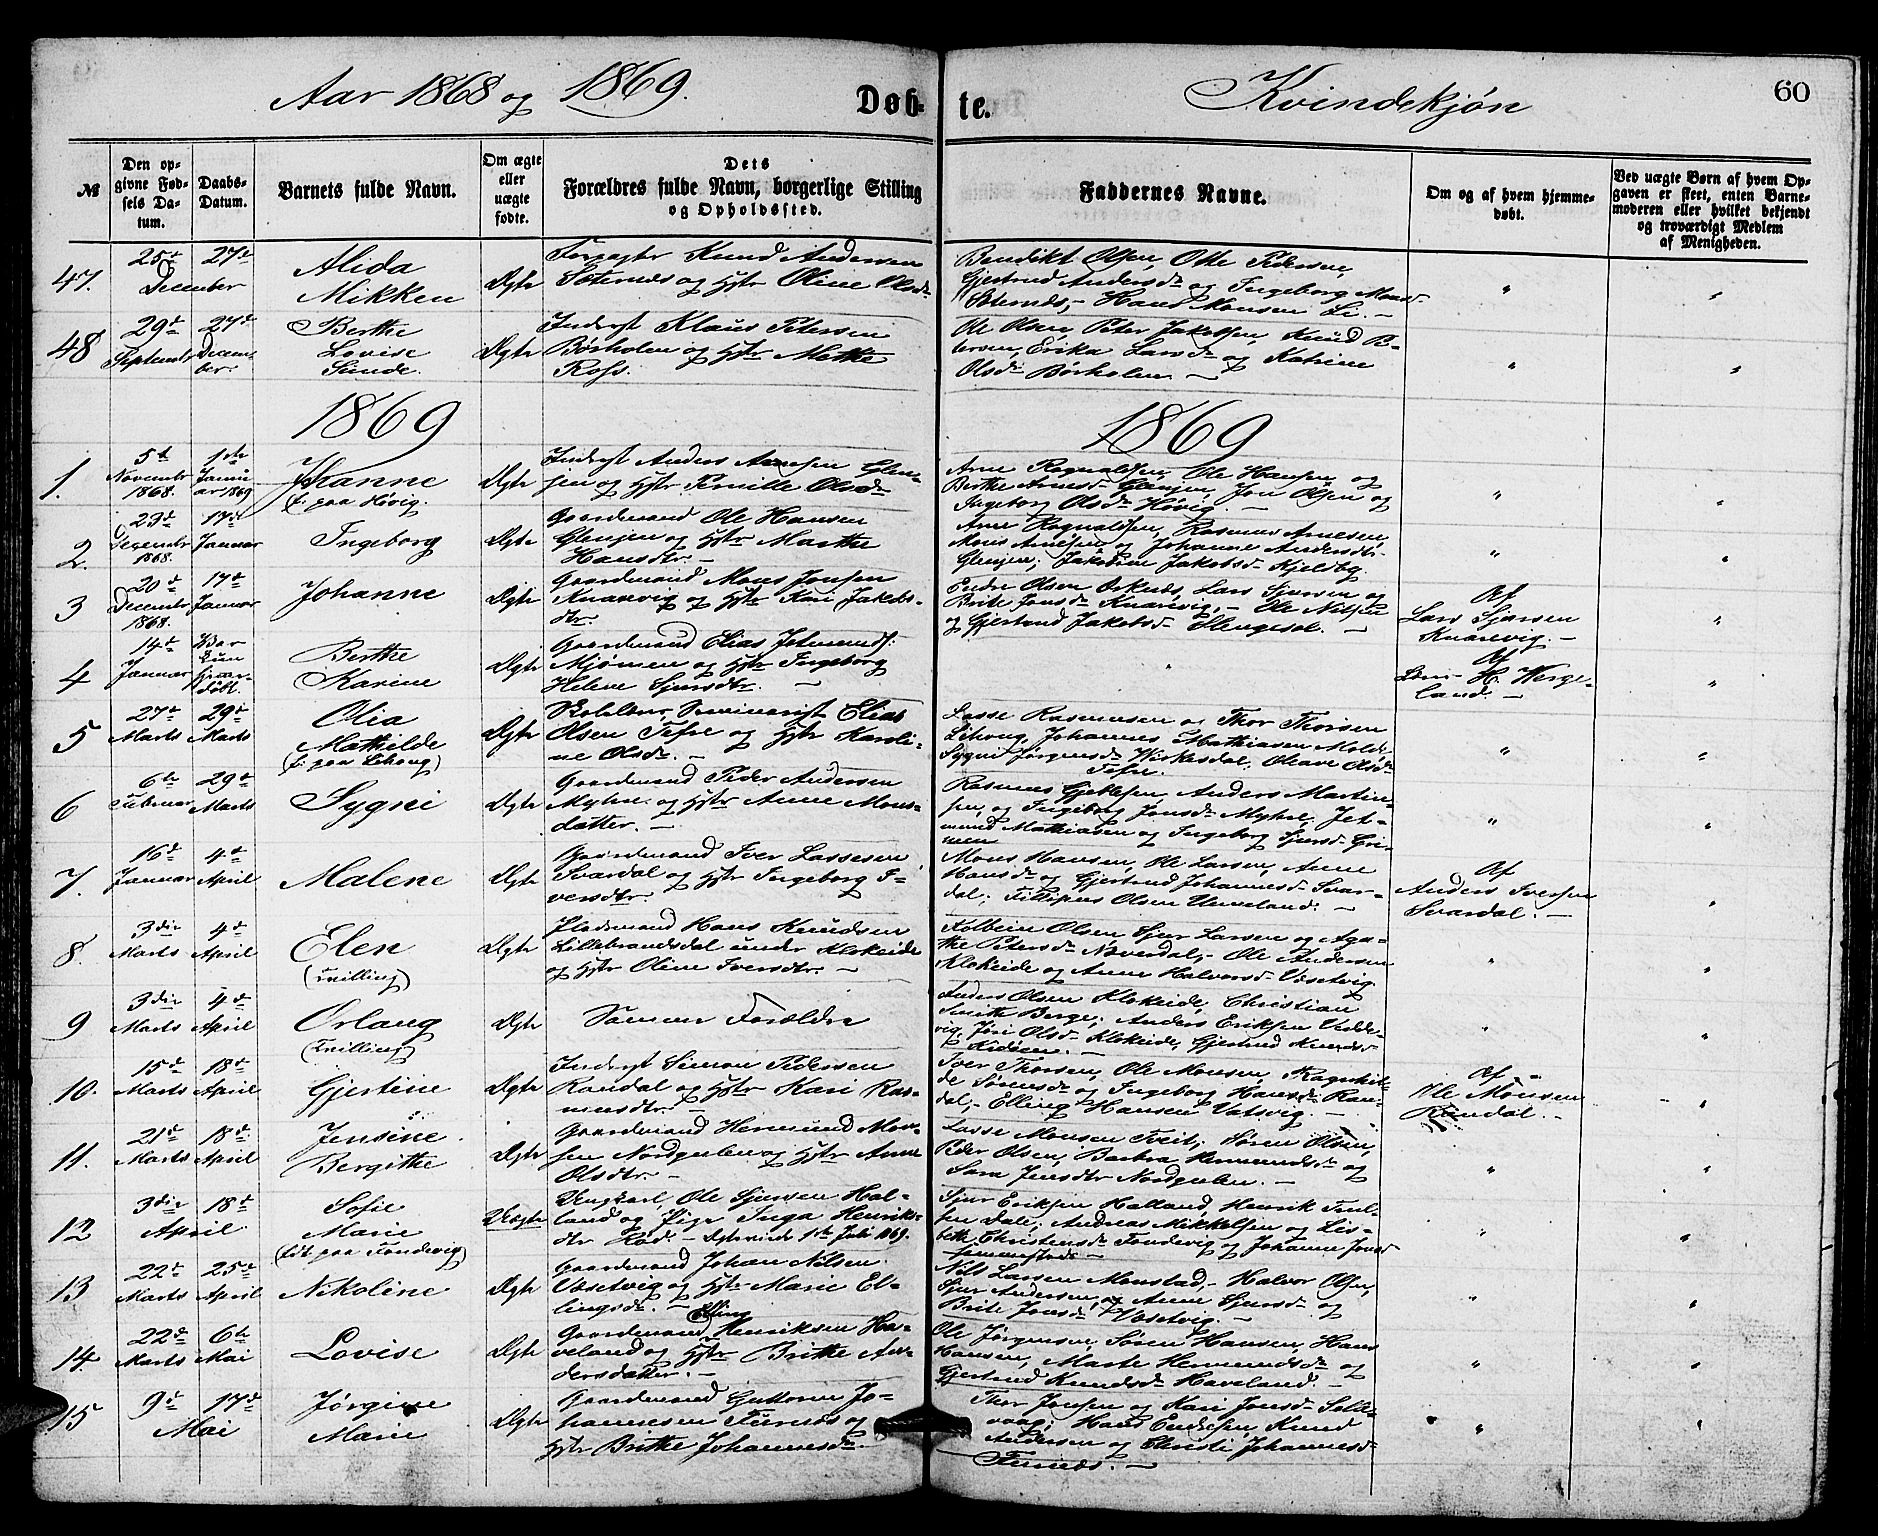 Aar 1868 og 1869.
Døb-
te.
Kvindekjøn
60
№
Den op-
givne Fød-
sels Da-
tum.
Daabs-
Datum.
Barnets fulde Navn.
Om ægte
eller
uægte
fødte.
Dets
Forældres fulde Navn, borgerlige Stilling
og Opholdssted.
Faddernes Navne.
Om og af hvem hjemme-
døbt.
Ved uægte Børn af hvem Op-
gaven er skeet, enten Barne-
moderen eller hvilket bekjendt
og troværdigt Medlem
af Menigheden.
47.
25de 27de
December
Alida
Mikken
Ægte
Knud Andersen
og Hstr Oline Olsdr
Benedikt Olsen, Otte Pedersen,
Gjertrud Andersdr og Ingeborg Monsdr
Hans Monsen Li. –
48
29de
September
27de
Decem-
ber.
Berthe
Lovise
Sunde.
Ægte
Inderst Klaus Petersen
Børholen og Hstr Marthe
Ross.
Ole Olsen, Peter Jakobsen, Knud P-
tersen, Erika Larsdr og Katrine
Olsdr Børholen –
1869
1869
1.
5te
Novembr
1868.
1ste
Janu-
ar 1869
Johanne
(f. paa Høvig.
Ægte
Inderst Anders Arnesen Glen-
jen og Hstr Pernille Olsdr
Arne Rognaldsen, Ole Hansen og
Berthe Arnesdr Glenjen, Jon Olsen og
Ingeborg Olsdr Høvig. –
2.
23de
Decembr
1868.
17de
Januar
Ingeborg
Ægte
Gaardmand Ole Hansen
Glenjen og Hstr Marthe
Hansdtr. –
Arne Rognaldsen, Rasmus Arnesen,
Mons Arnesen og Johanne Andersdtr
Glenjen; Jakobine Jakobsdr Kjeldbg.
3
20de
Decembr
1868.
17de
Januar
Johanne
Ægte
Gaardmand Mons Jonsen
Knarvig og Hstr Kari Jakobs-
dtr.
Endre Olsen Lars Sjursen og
Brite Jonsdr Knarvig, – Ole Nilsen
og Gjertrud Jakobsdr –
Af
Lars Sjursen
Knarevig. –
4
14de
Januar
Bar
kun
hjem-
døbt.
Berthe
Karine
Ægte
Gaardmand Elias Jetmunds.
Mjømen og Hstr Ingeborg
Helene Sjursdtr. –
Af
H. Werge-
land. –
5
27de
Marts
29de
Marts
Olia
Mathilde
(f. paa Lihoug)
Ægte
Seminarist Elias
Olsen Tefre og Hstr Karoli-
ne Olsdr. –
Lasse Rasmussen og Thor Thorsen
Lihoug, Johannes Mathiasen
Sygni Jørgensdr Wirkesdal; Oleave Olsdr
Tefre.
6
6te
Februar
29de
Marts
Sygni
Ægte
Gaardmand Peder Andersen
Myhre og Hstr Anne Mons-
datter. –
Rasmus Gjeblesen, Anders Martin-
sen og Ingeborg Jonsdr Myhre; Jet-
mund Mathiasen og Ingeborg Sjursdr Gri-
men
7.
16de
Januar
4de
April
Malene
Ægte
Gaardmand Iver Lassesen
Svardal og Hstr Ingeborg I-
versdtr.
Mons Hansen, Ole Larsen, Anne
Hansdr og Gjertrud Johannesdr Svar-
dal; Fillipus Olsen Unneland. –
Af
Anders Iversen
Svardal. –
8.
3die
Marts
4de
April
Elen
(Tvilling)
Ægte
Pladsmand Hans Knudsen
Lillebrandsdal under Klokeide
og Hstr Oline Iversdtr. –
Kolbein Olsen, Sjur Larsen og Aga-
the Petersdr Nøverdal, – Ole Andersen
Klokeide og Anne Halvorsdr Vasetvig
9
3die
Marts
4de
April
Ørlaug
(Tvilling)
Ægte
Samme Forældre
Anders Olsen Klokeide, Christian
Smith Berge; Anders Eriksen Vadde-
vig, Jøri Olsdr Klokeide, Gjertrud Knudsdr
–
10.
15de
Marts
18de
April
Gjertine
Ægte
Inderst Simon Pedersen
Randal og Hstr Kari Ras-
musdtr. –
Iver Thorsen, Ole Monsen, Ragnhil-
de Sørensdr og Ingeborg Hansdr Ran-
dal, – Elling Hansen Vatsvig. –
Af
Ole Monsen
Randal. –
11.
21de
Marts
18de
April
Jensine
Bergithe
Ægte
Gaardmand Hermund Mon-
sen Nordgulen og Hstr Anne
Olsdtr. –
Lasse Monsen Tveit, Søren Olsen,
Peder Olsen, Barbra Hermundsdr og
Sara Jensdtr Nordgulen. –
12
3die 18de
April
Sofie
Marie
(født paa Tondevig)
Uægte
Ungkarl Ole Sjursen Hal-
land og Pige Inga Henriks-
dtr 1ste Juli 1869.
Sjur Eriksen Halland, Henrik Paul-
sen Dale; Andreas Mikkelsen og Lis-
beth Christensdr Tondevig og Johanne Jonsdr
–
13
22de
Marts
25de
April
Nikoline
Ægte
Gaardmand Johan Nilsen
Vasetvig og Hstr Marie El-
lingsdr. –
Nils Larsen Monstad, – Halvor Olsen,
Sjur Andersen og Anne Sjursdr og
Brite Jonsdr Vasetvig. –
14.
22de
Marts
6te
Mai
Lovise
Ægte
Elling
Gaardmand Henriksen Ha-
veland og Hstr Brithe An-
dersdatter. –
Ole Jørgensen, Søren Hansen, Hans
Hansen, Marte Hermundsdr og
Gjertrud Knudsdr Haveland. –
15
9de 17de
Mai
Jørgine
Marie
Ægte
Gaardmand Guttorm Jo-
hannesen Furenæs og
Hstr Brithe Johannesdr. –
Thor Jonsen og Kari Jonsdr Selle-
vaag; Hans Endresen, Knud
Andersen og Christi Johannesdr
Furenæs. –